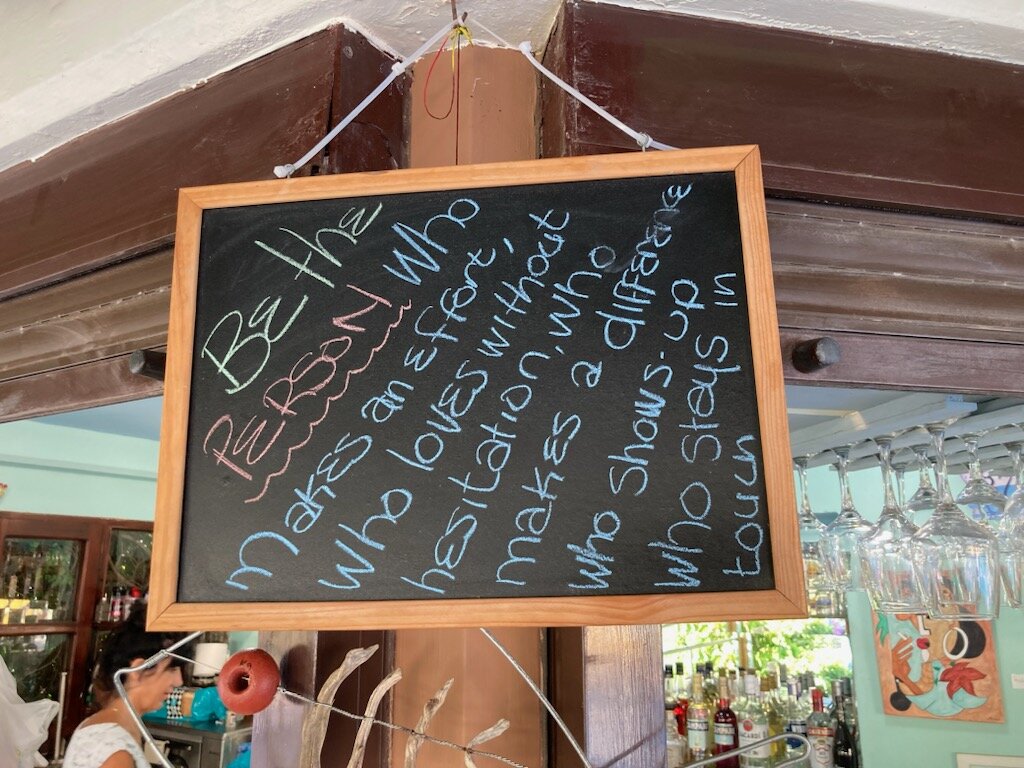 BE the
PERSON Who
makes an effort,
Who loves without
hesitation, who
makes a difference
Who shows-up
Who stays in
touch
BACARDI